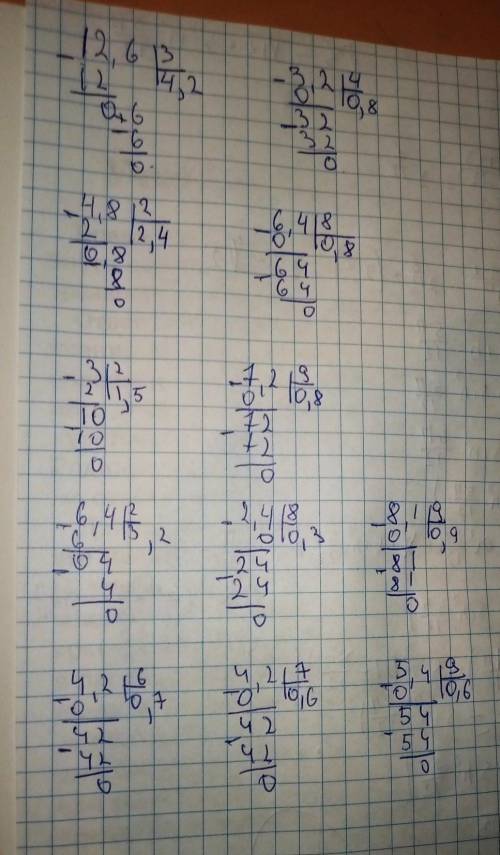 -12,6 | 3
12 | 4,2
0,6
-6
0

-3,2 | 4
0 | 0,8
-32
32
0

-4,8 | 2
2 | 2,4
0,8
8
0

-6,4 | 8
0 | 0,8
-64
64
0

-3 | 2
2 | 1,5
-10
10
0

-7,2 | 9
0, | 0,8
-72
72
0

-6,4 | 2
6 | 3,2
-04
4
0

-2,4 | 8
0 | 0,3
-24
24
0

-8,1 | 9
0, | 0,9
-81
81
0

-4,2 | 6
0 | 0,7
-42
42
0

-4,2 | 7
0 | 0,6
-42
42
0

-5,4 | 9
0, | 0,6
-54
54
0